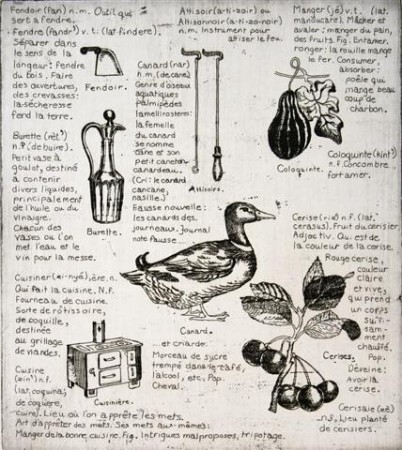 Fendoir (fan) n.m. Outil qui
sert a fendre.
Fendre (fandr') v. t. (lat. findere).
Séparer dans
le sens de la
longeur: fendre
du bois. Faire
des ouvertures,
des crevasses:
la sécheresse
fend la terre.
Fendoir.
Burette (rèt') 
n.f. (de buire).
Petit vase à
goulot, destiné
à contenir
divers liquides,
principalement
de l'huile ou du
vinaigre.
Chacun des
vases où l'on
met l'eau et le
vin pour la messe.
Burette.
Cuisiner (ai-nyé), ère, n.
Qui fait la cuisine. N.f.
Fourneau de cuisine.
Sorte de rôtissoire,
de coquille,
destinée
au grillage
de viandes.
Cuisine
(ein') n.f.
(lat. coquina,
de coquere,
cuire). Lieu où l'on apprête les mets.
Art d'apprêter des mets. Ses mets aux-mêmes:
Manger de la bonne cuisine. Fig. Intrigues malproposes, tripotage.
Cuisinière.
Attisoir (a-ti-zoir) ou
Attisonnoir (a-ti-zo-noir)
n.m. Instrument pour
attiser le feu.
Canard (nar)
n.m. (de cane)
Genre d'oiseaux
aquatiques
palmipèdes
lamellirostern:
la femelle
du canard
se nomme
cane et son
petit caneton
canardeau.
(Cri: le canard
cancane,
nasille.)
Fausse nouvelle:
les canards des
journaux. Journal
note fausse
Attisoirs.
Canard.
et criarde:
Morceau de sucre
trempé dans le café,
l'alcool, etc. Pop.
Cheval.
Manger (jé) v.t. (lat.
manducare). Mâcher et
avaler: manger du pain,
des fruits. Fig. Entamer,
ronger: la rouille mange
le fer. Consumer,
absorber:
poêle qui
mange beau
coup de
charbon.
Coloquinte.
Coloquinte (kint')
n.f. Concombre
fort amer.
Cerise (ri'z) n.f. (lat.
cerasus). Fruit du cerisier.
Adjectiv. Qui est de
la couleur de la cerise.
Rouge cerise,
couleur
claire
et vive,
qui prend
un corps
suffi-
sam-
ment
chauffé.
Pop.
Déraine:
Avoir la
cerise.
Cerises.
Cerisaie (zè)
n.f. Lieu planté
de cerisiers.